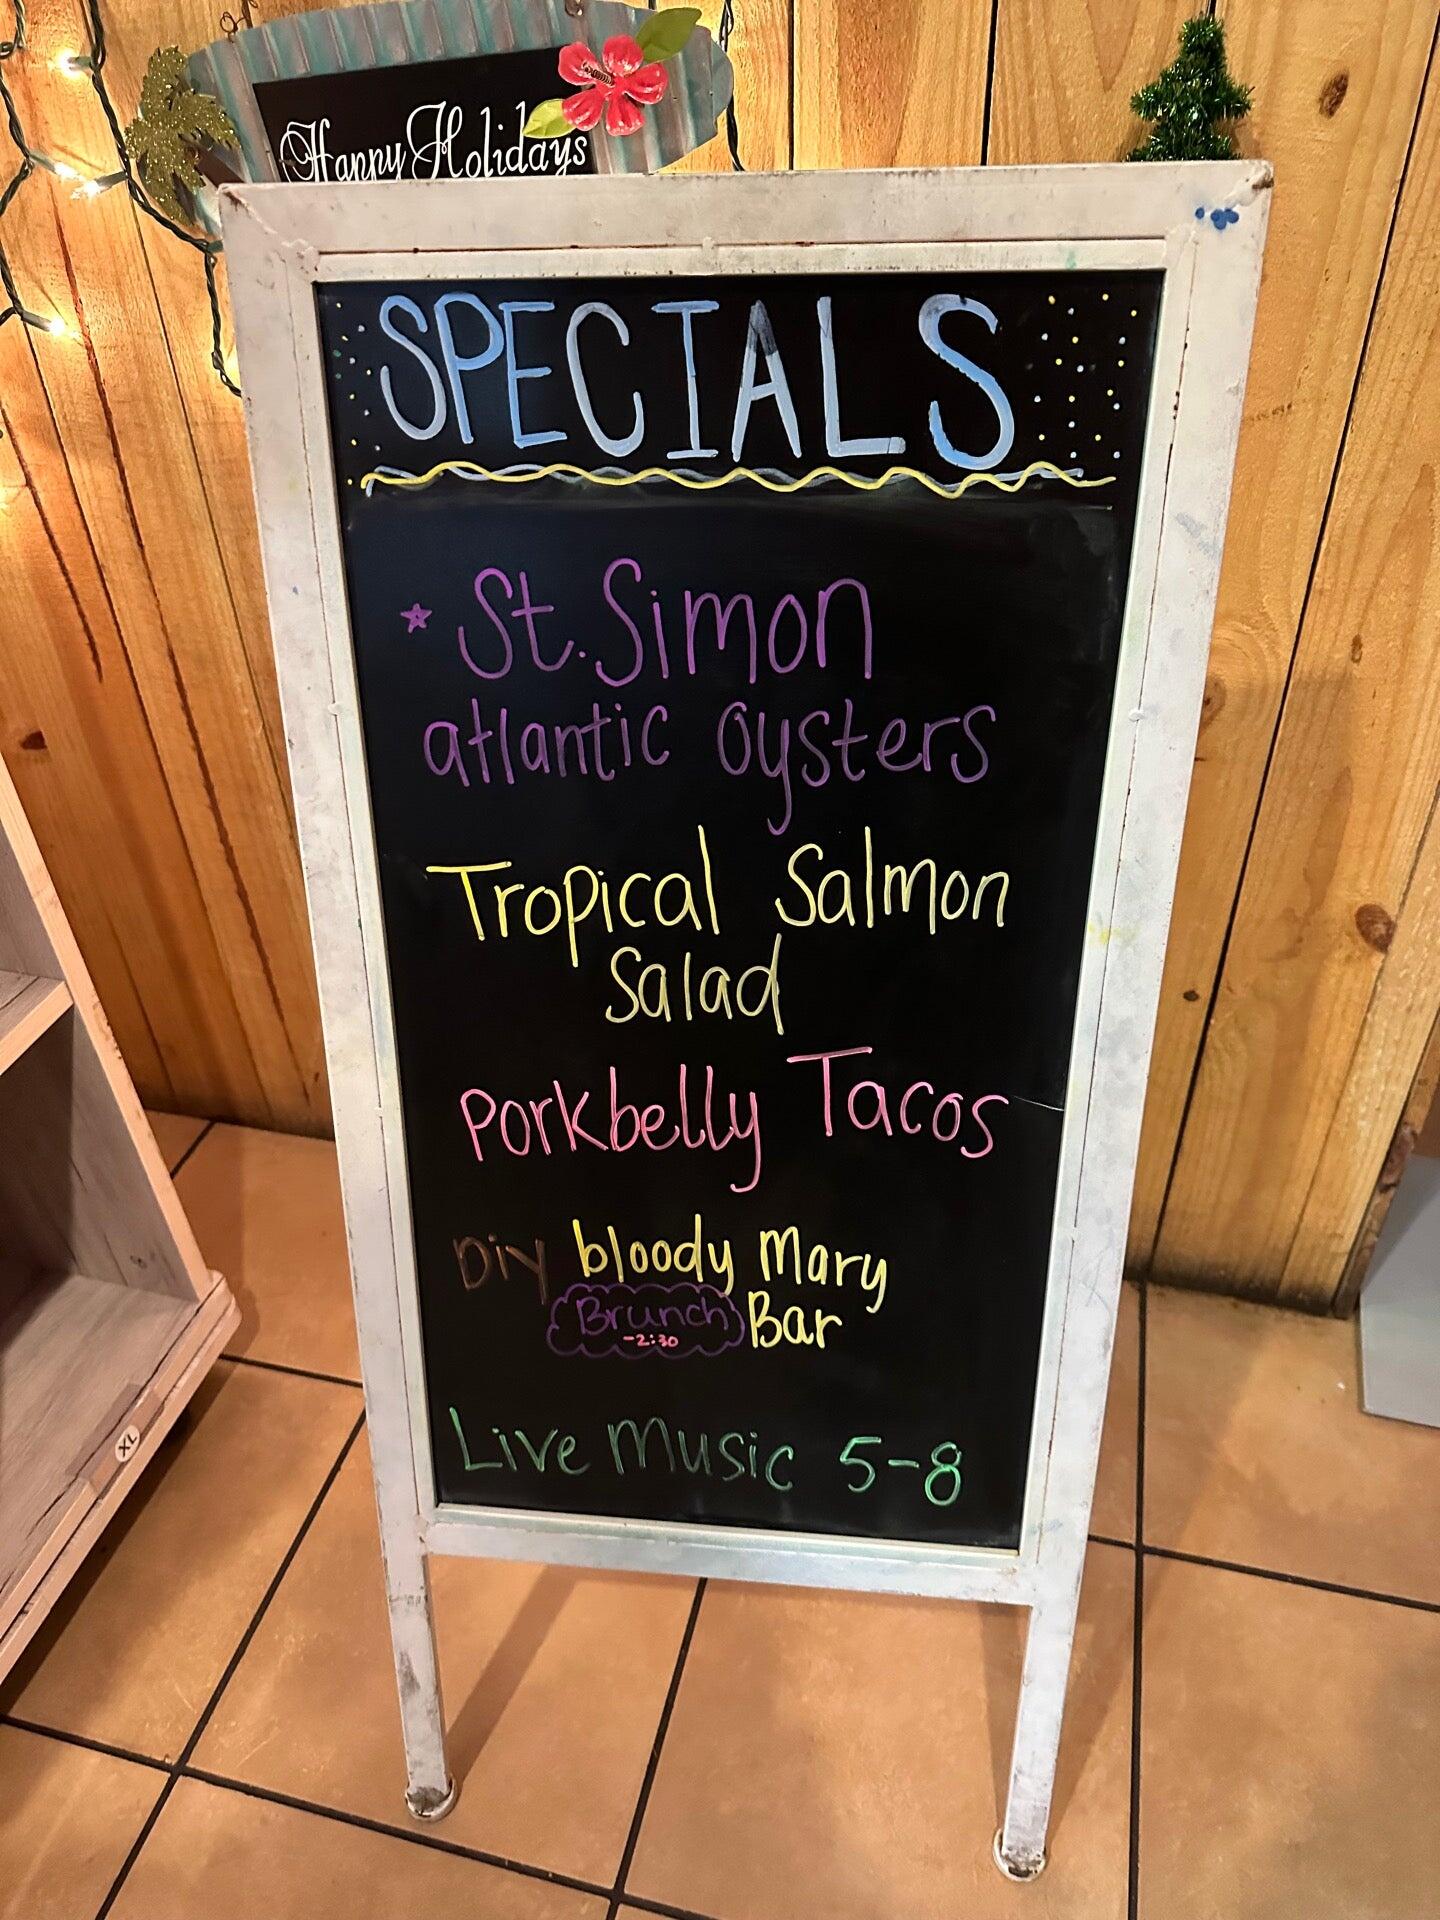 Happy Holidays
SPECIALS
St. Simon
atlantic oysters
Tropical Salmon
Salad
Porkbelly Tacos
DiY bloody Mary
Brunch Bar
-2:30
Live Music 5-8
XL